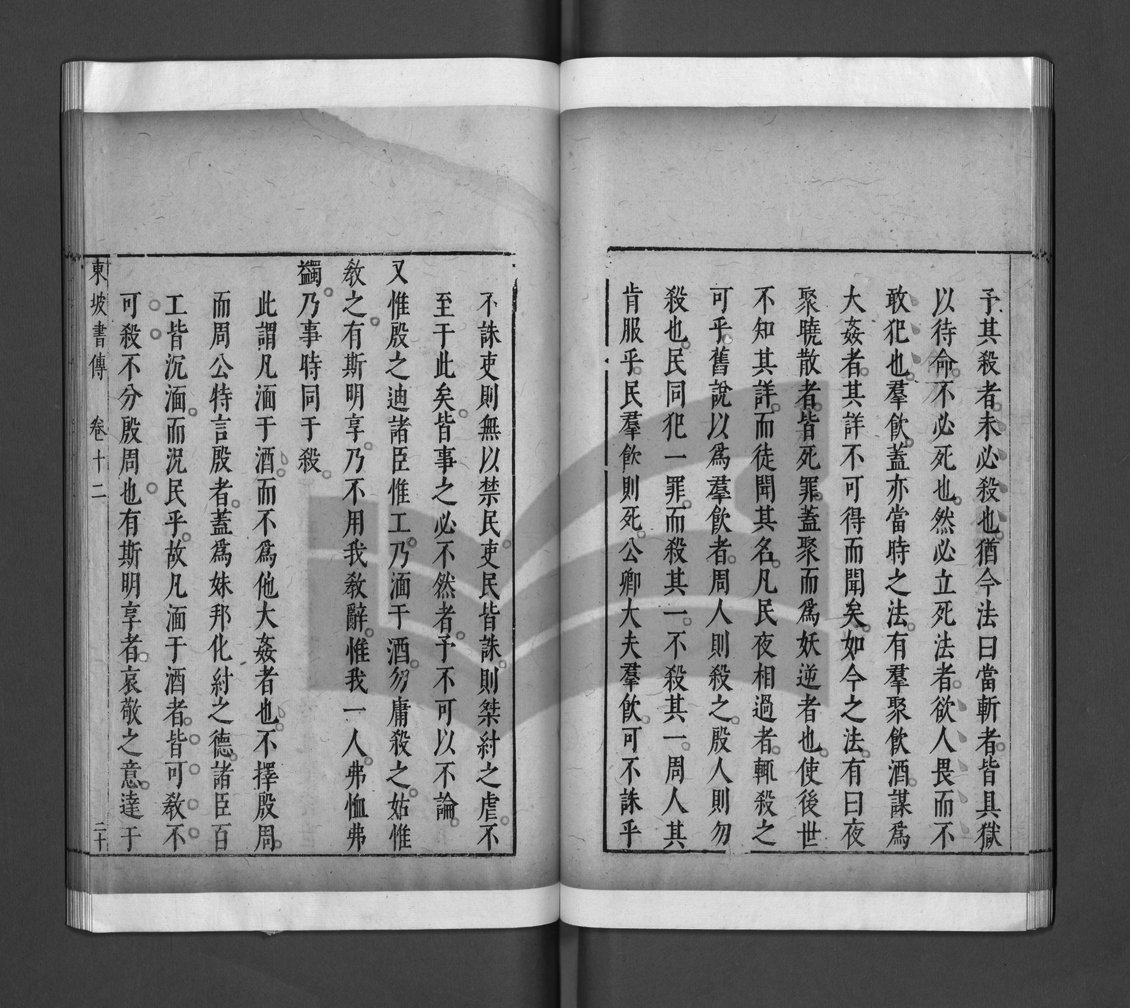 予其殺者未必殺也猶今法曰當斬者皆具獄
以待命不必死也然必立死法者欲人畏而不
敢犯也羣飲蓋亦當時之法有羣聚飲酒謀爲
大姦者其詳不可得而聞矣如今之法有曰夜
聚曉散者皆死罪蓋聚而爲妖逆者也使後世
不知其詳而徒聞其名凡民夜相過者輒殺之
可乎舊說以爲羣飲者周人則殺之殷人則勿
殺也民同犯一罪而殺其一不殺其一周人其
肯服乎民羣飲則死公卿大夫羣飲可不誅乎
不誅吏則無以禁民吏民皆誅則桀紂之虐不
至于此矣皆事之必不然者予不可以不論
又惟殷之迪諸臣惟工乃湎于酒勿庸殺之姑惟
敎之有斯明享乃不用我敎辭惟我一人弗恤弗
蠲乃事時同于殺
此謂凡湎于酒而不爲他大姦者也不擇殷周
而周公特言殷者蓋爲妹邦化紂之德諸臣百
工皆沉湎而況民乎故凡湎于酒者皆可敎不
可殺不分殷周也有斯明享者哀敬之意達于
東坡書傳 卷十二 二十